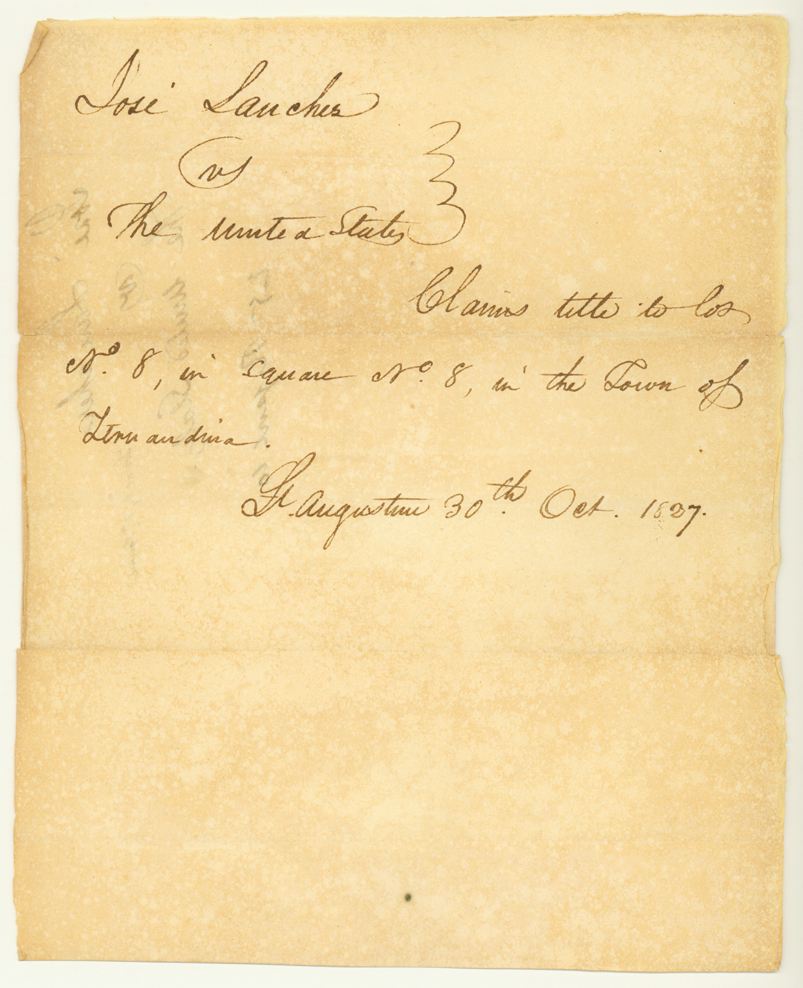 José Sanchez
vs
The United States
Claims title to lot
No. 8, in square No. 8, in the Town of
Fernandina.
St. Augustine 30th. Oct. 1827.